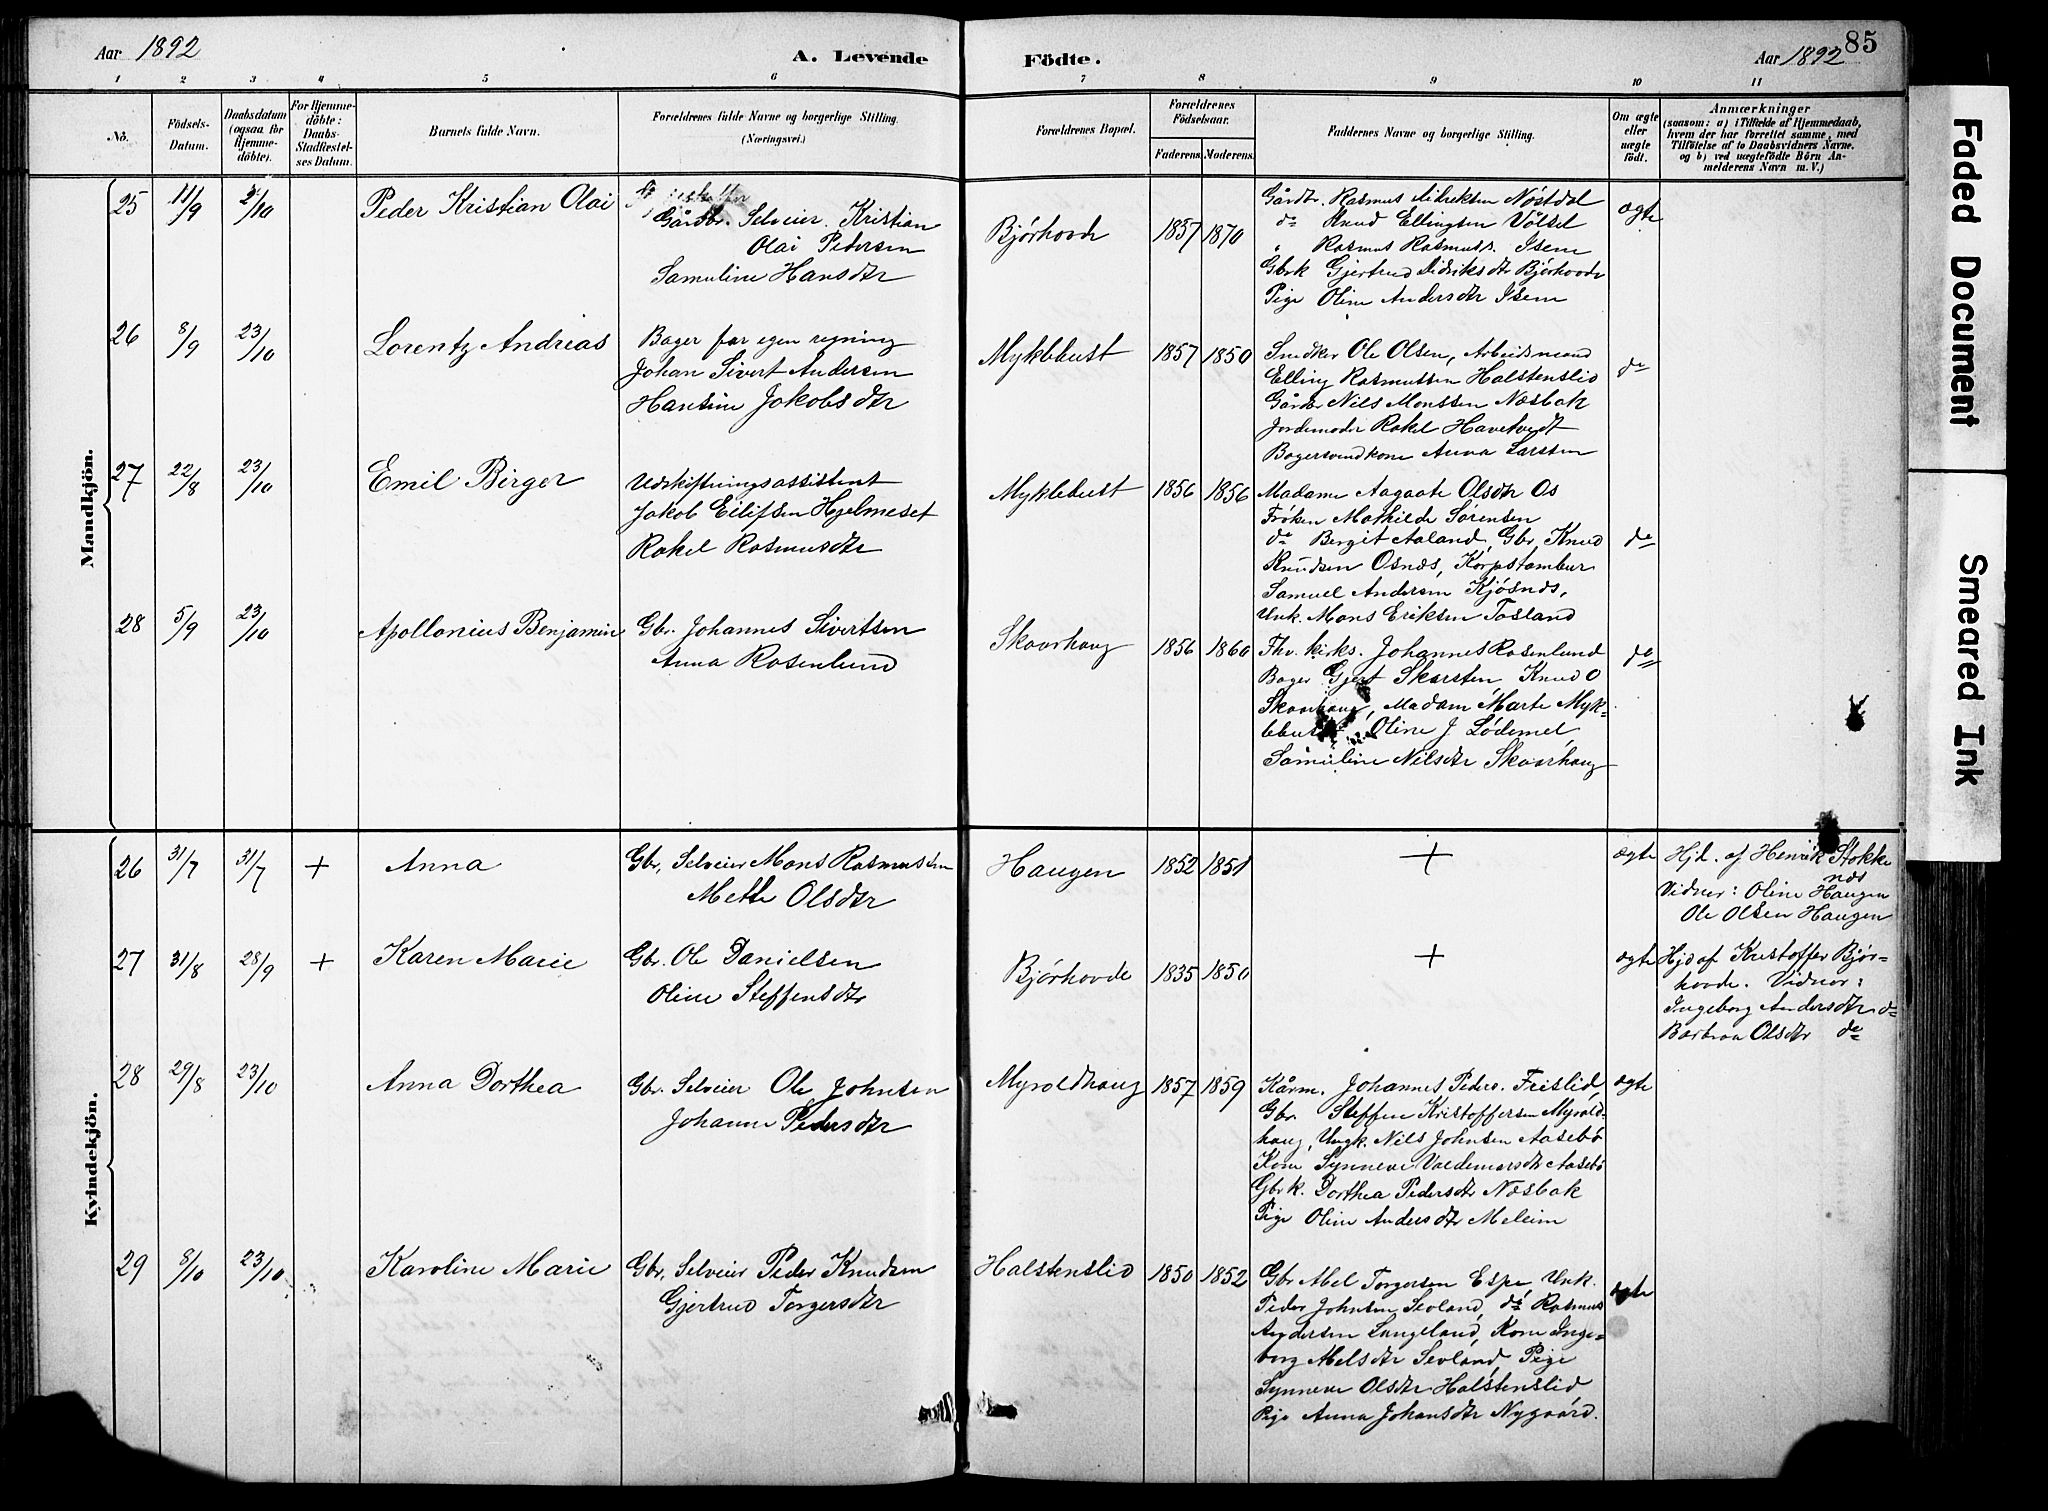 Aar 1892
A. Levende
Födte.
Aar 1892
85
1 2 3 4 5 6 7 8 9 10 11
No.
Födsels-
Datum.
Daabsdatum
(ogsaa for
Hjemme-
döbte).
For Hjemme-
döbte:
Daabs-
Stadfæstel-
ses Datum.
Barnets fulde Navn.
Forældrenes fulde Navne og borgerlige Stilling.
(Næringsvei.)
Forældrenes Bopæl.
Forældrenes
Födselsaar.
Faderens.
Moderens.
Faddernes Navne og borgerlige Stilling.
Om ægte
eller
uægte
födt.
Anmærkninger
(saasom: a) i Tilfælde af Hjemmedaab,
hvem der har forrettet samme, med
Tilföielse af to Daabsvidners Navne.
og b) ved uægtefödte Börn An-
melderens Navn m. V.)
Mandkjön.
25 11/9 2/10 Peder Kristian Olai
Gårdbr. Selveier Kristian
Olai Pedersen
Samuline Hansdtr
Bjørhovde 1857 1870
Gårdbr. Rasmus Didreksen Nøstdal
do Knud Ellingsen Völset
" Rasmus Rasmuss. Isene
Gbrk Gjertrud Didriksdtr Bjørhovde
Pige Oline Andersdtr Isene
ægte
26 8/9 23/10 Lorentz Andreas
Bager for egen regning
Johan Sivert Andersen
Hansine Jakobsdtr
Myklebust 1857 1850
Snedker Ole Olsen, Arbeidsmand
Elling Rasmussen Halstenslid
Gårdbr Nils Monssen Næsbak
Jordemoder Rakel Havetvedt
Bagersvendkone Anna Larssen
do
27 22/8 23/10 Emil Birger
Udskiftningsassistent
Jakob Eilifsen Hjelmeset
Rakel Rasmusdtr
Myklebust 1856 1856
Madame Aagaate Olsdtr Os
Frøken Mathilde Sørensen
do Bergit Aaland, Gbr. Knud
Knudsen Osnes, Korpstambur
Samuel Andersen Kjøsnes,
Unk. Mons Eriksen Tasland
do
28 5/9 23/10 Apollonius Benjamin
Gbr. Johannes Sivertsen
Anna Rosenlund
Skaarhaug 1856 1860
Fhv. kirks. Johannes Rosenlund
Bager Gjert Skarsten Knud O
Skaarhaug, Madam Marte Myk-
lebust Oline J Lødemel
Samuline Nilsdtr Skaarhaug
do
Kvindekjön.
26 31/7 31/7 + Anna
Gbr, Selveier Mons Rasmussen
Mette Olsdtr
Haugen 1852 1851
+
ægte
Hjd. af Henrik Stokke
næs
Vidner: Oline Haugen
Ole Olsen Haugen
27 31/8 28/9 + Karen Marie
Gbr. Ole Danielsen
Oline Steffensdtr
Bjørhovde 1835 1850
+
ægte
Hjd af Kristoffer Bjør-
hovde. Vidner:
Ingeborg Andersdtr do
Barbraa Olsdtr do
28 29/8 23/10 Anna Dorthea
Gbr. Selveier Ole Johnsen
Johanne Pedersdtr
Myroldhaug 1857 1859
Kårm. Johannes Peders. Frislid,
Gbr. Steffen Kristoffersen Myrold-
haug, Ungk. Nils Johnsen Aasebø
Kone Synneve Valdemarsdtr Aasebø
Gbrk. Dorthea Pedersdtr Næsbak
Pige Oline Andersdtr Meleim
ægte
29 8/10 23/10 Karoline Marie
Gbr, Selveier Peder Knudsen
Gjertrud Torgersdtr
Halstenslid 1850 1852
Gbr Mel Torgersen Espe, Unk.
Peder Johnsen Sevland, do Rasmus
Andersen Langeland, Kone Inge-
borg Melsdtr Sevland Pige
Synneve Olsdtr Halstenslid
Pige Anna Johansdtr Nygaard.
ægte
Faded Document
Smeared Ink